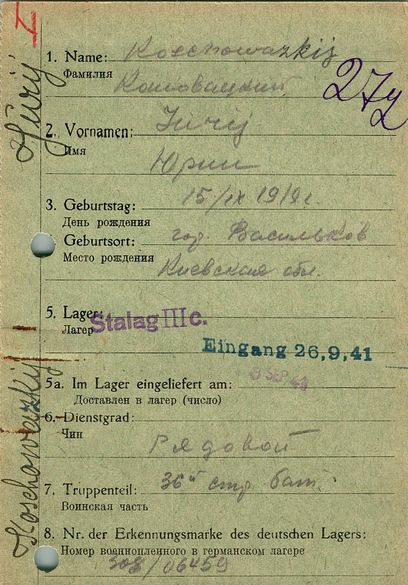 I
1. Name: Koschowazkij
Фамилия Кошовацкий
272
2. Vornamen: Jurij
Имя Юрий
3. Geburtstag: 15/IX 1919г.
День рождения
Geburtsort: гор. Васильков
Место рождения Киевская обл.
5. Lager: Stalag III c.
Лагер
Eingang 26.9.41
5a. Im Lager eingeliefert am:
Доставлен в лагер (число)
6. Dienstgrad:
Чин Рядовой
7. Truppenteil: 36й стр. бат.
Воинская часть
8. Nr. der Erkennungsmarke des deutschen Lagers:
Номер военнопленного в германском лагере
308/06459
Koschowazkij
Jurij